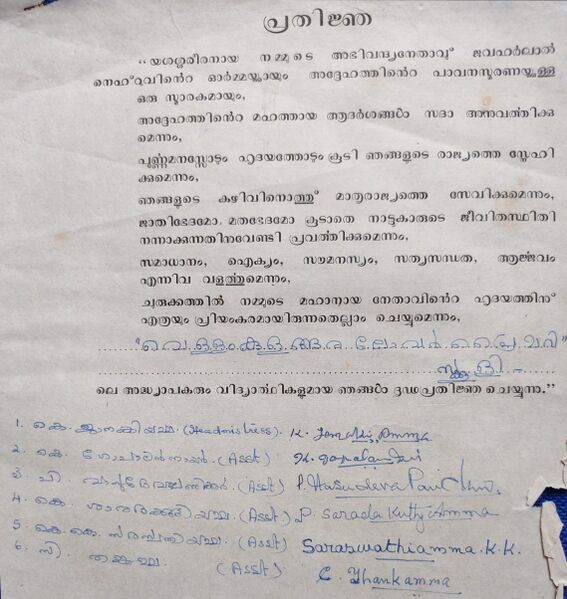 പ്രതിജ്ഞ
“യശശ്ശരീരനായ നമ്മുടെ അഭിവന്ദ്യനേതാവ് ജവഹർലാൽ
നെഹ്റുവിൻെറ ഓർമ്മയ്ക്കായും അദ്ദേഹത്തിൻെറ പാവനസ്മരണയ്ക്കുള്ള
ഒരു സ്മാരകമായും,
അദ്ദേഹത്തിൻെറ മഹത്തായ ആദർശങ്ങൾ സദാ അനുവർത്തിക്കു
മെന്നും,
പൂർണ്ണമനസ്സോടും ഹൃദയത്തോടും കൂടി ഞങ്ങളുടെ രാജ്യത്തെ സ്നേഹി
ക്കുമെന്നും,
ഞങ്ങളുടെ കഴിവിനൊത്തു് മാതൃരാജ്യത്തെ സേവിക്കുമെന്നും,
ജാതിഭേദമോ, മതഭേദമോ കൂടാതെ നാട്ടുകാരുടെ ജീവിതസ്ഥിതി
നന്നാക്കുന്നതിനുവേണ്ടി പ്രവർത്തിക്കുമെന്നും,
സമാധാനം, ഐക്യം, സൗമനസ്യം, സത്യസന്ധത, ആർജ്ജവം
എന്നിവ വളർത്തുമെന്നും,
ചുരുക്കത്തിൽ നമ്മുടെ മഹാനായ നേതാവിൻെറ ഹൃദയത്തിന്
എത്രയും പ്രിയംകരമായിരുന്നതെല്ലാം ചെയ്യുമെന്നും,
“വെള്ളംകുളങ്ങര ലോവർ പ്രൈമറി”
സ്കൂ
ലെ അദ്ധ്യാപകരും വിദ്യാർത്ഥികളുമായ ഞങ്ങൾ ദൃഢപ്രതിജ്ഞ ചെയ്യുന്നു.”
1. കെ. ജാനകിയമ്മ. (Headmistress). K. Janaki Amma
2. കെ. ഗോപാലൻ നായർ. (Asst) K. Gopalan Nair
3. പി. വാസുദേവപ്പണിക്കർ. (Asst) P. Vasudeva Panicker
4. കെ. ശാരദക്കുട്ടിയമ്മ. (Asst) P. Sarada Kutty Amma
5. കെ. കെ. സരസ്വതിയമ്മ. (Asst) Saraswathiamma. K. K.
6. സി. തങ്കമ്മ. (Asst) C. Thankamma